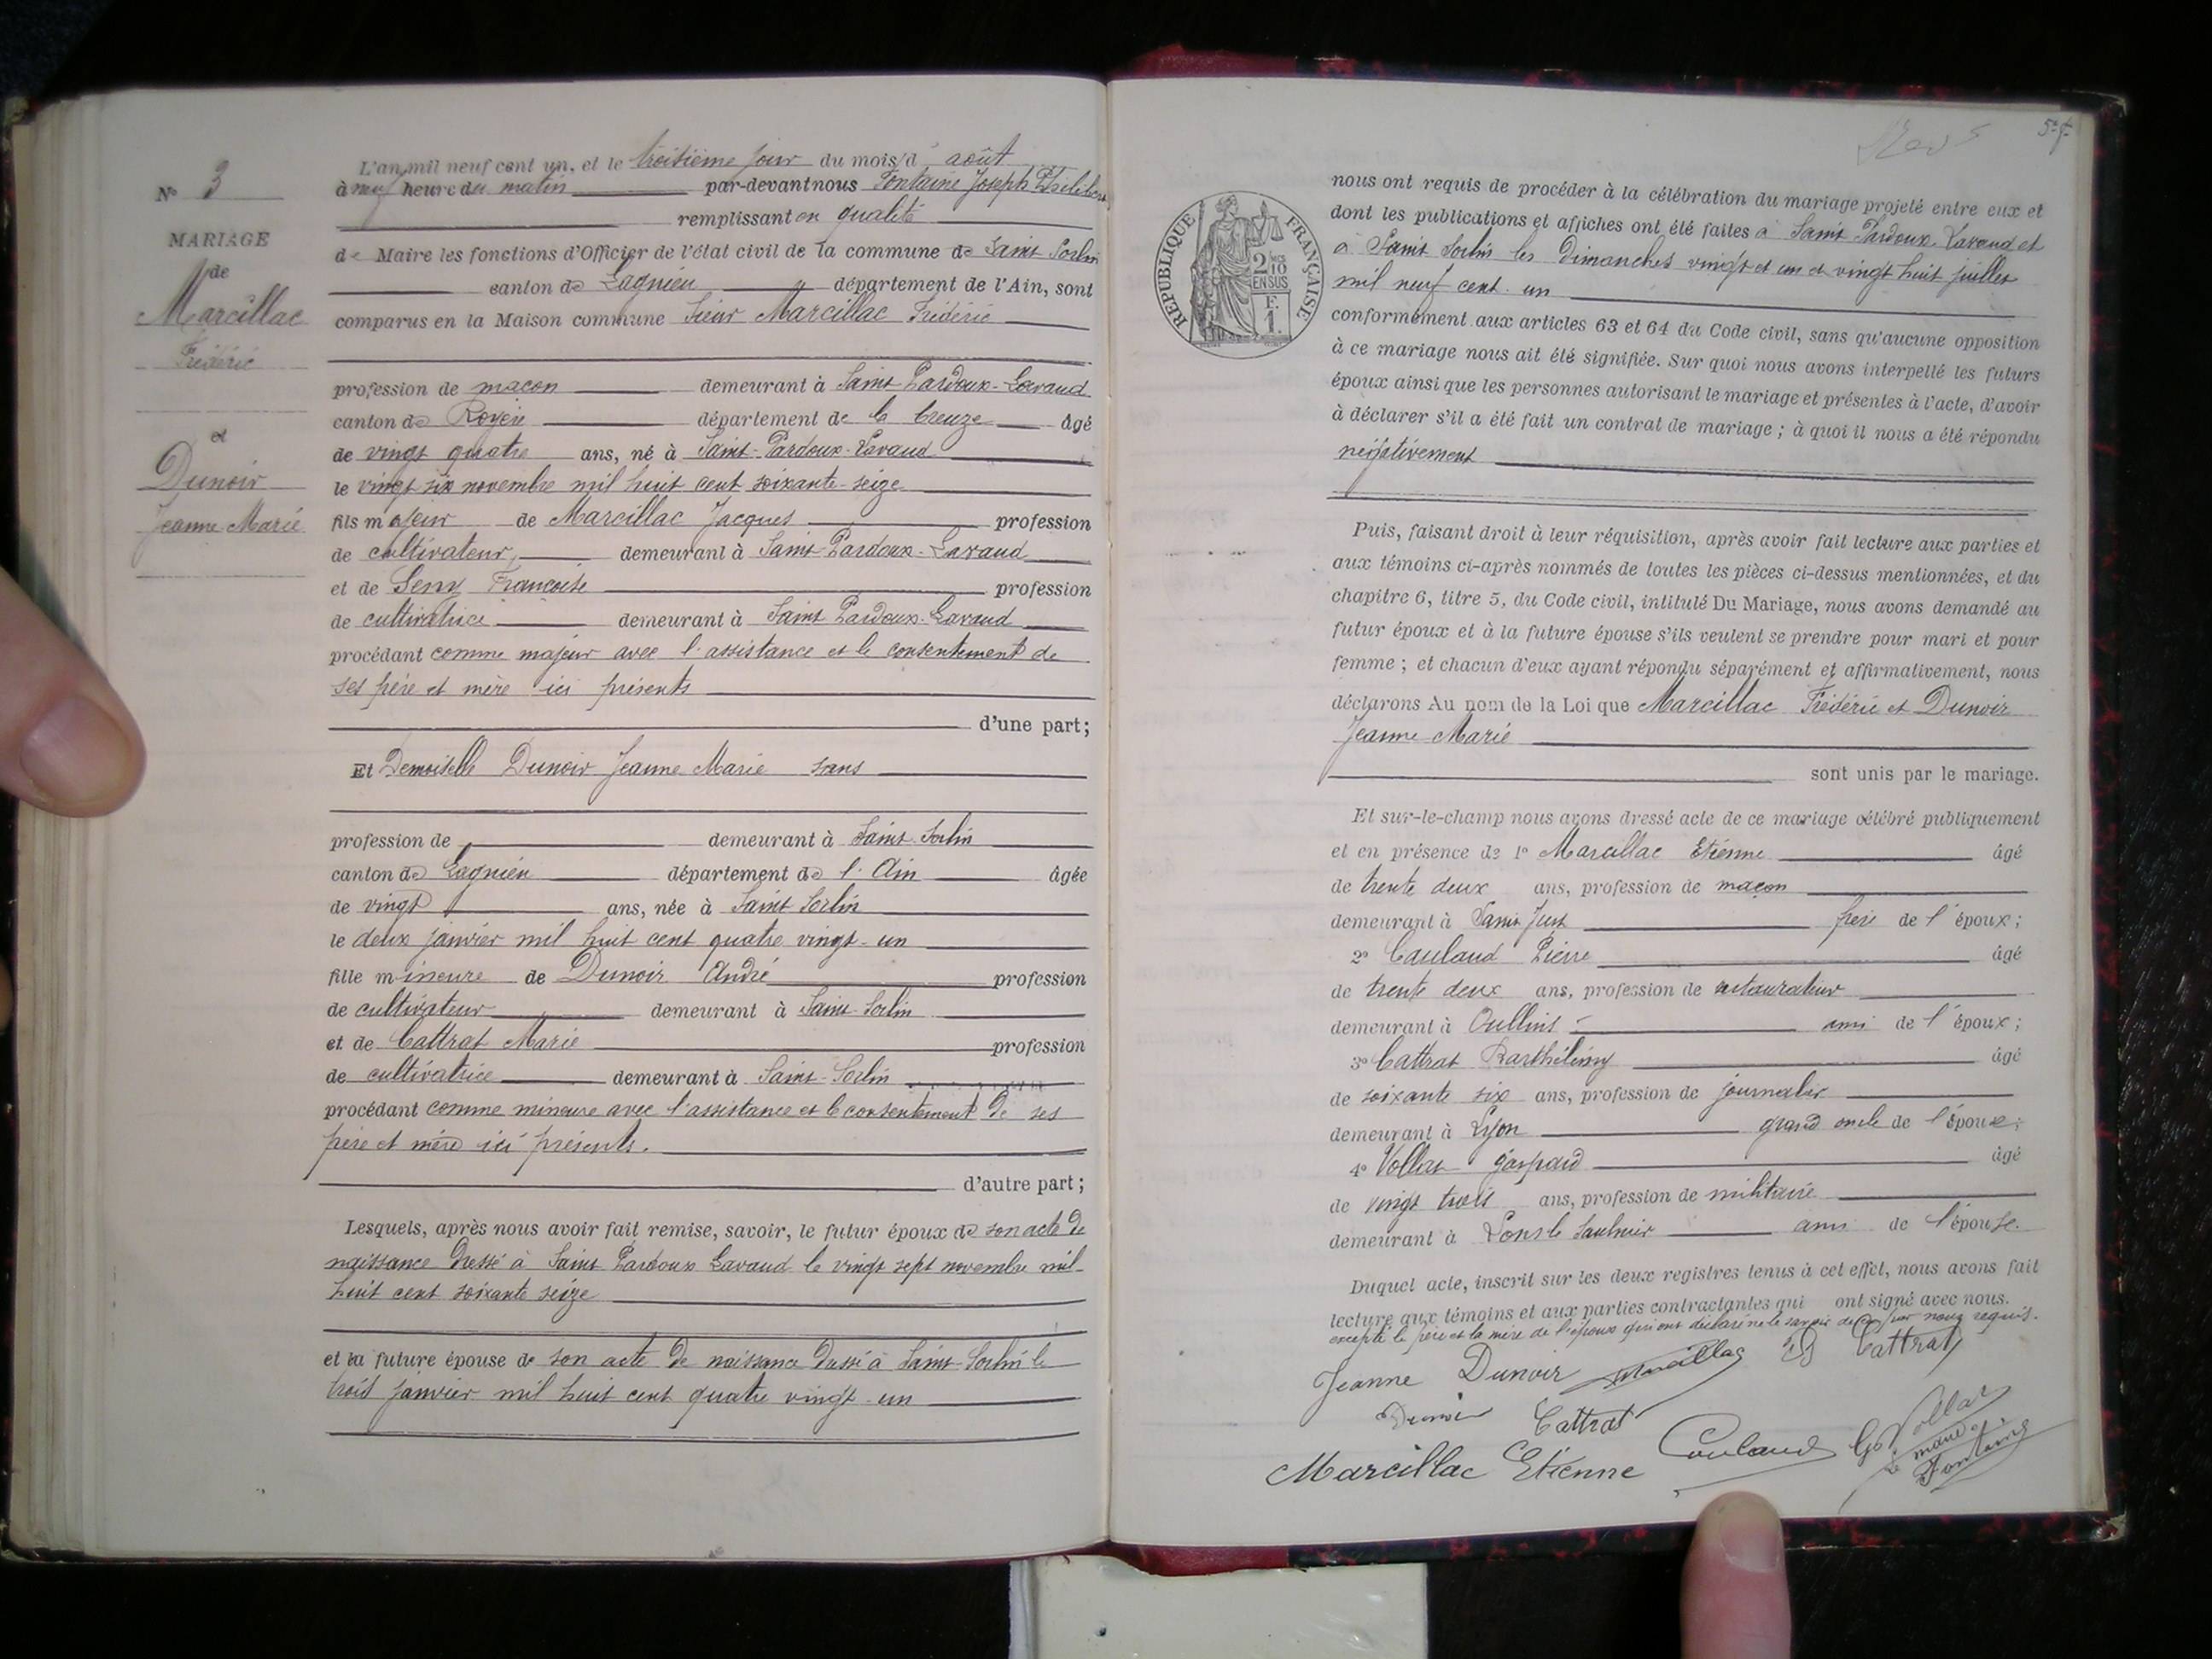 N° 3
MARIAGE
de
Marcillac
Frédéric
et
Dunoir
Jeanne Marie
L'an mil neuf cent un, et le troisième jour du mois d' août
à neuf heure du matin par-devant nous Fontaine Joseph Philibert
remplissant en qualité
de Maire les fonctions d'Officier de l'état civil de la commune de Saint Sorlin
canton de Lagnieu département de l'Ain, sont
comparus en la Maison commune Sieur Marcillac Frédéric
profession de maçon demeurant à Saint Pardoux-Lavaud
canton de Royère département de la Creuze âgé
de vingt quatre ans, né à Saint-Pardoux-Lavaud
le vingt six novembre mil huit cent soixante-seize
fils majeur de Marcillac Jacques profession
de cultivateur, demeurant à Saint-Pardoux-Lavaud
et de Françoise profession
de cultivatrice demeurant à Saint Pardoux-Lavaud
procédant comme majeur avec l'assistance et le consentement de
ses père et mère ici présents
d'une part;
Et Demoiselle Dunoir Jeanne Marie sans
profession de demeurant à Saint-Sorlin
canton de Lagnieu département de l'Ain âgée
de vingt ans, née à Saint Sorlin
le deux janvier mil huit cent quatre vingt-un
fille mineure de Dunoir André profession
de cultivateur demeurant à Saint-Sorlin
et de Cattrat Marie profession
de cultivatrice demeurant à Saint-Sorlin
procédant comme mineure avec l'assistance et le consentement de ses
père et mère ici présents.
d'autre part;
Lesquels, après nous avoir fait remise, savoir, le futur époux de son acte de
naissance dressé à Saint Pardoux Lavaud le vingt sept novembre mil
huit cent soixante seize
et la future épouse de son acte de naissance dressé à Saint-Sorlin le
trois janvier mil huit cent quatre vingt-un
RÉPUBLIQUE FRANÇAISE
2/10
EN SUS
F.
1.
nous ont requis de procéder à la célébration du mariage projeté entre eux et
dont les publications et affiches ont été faites à Saint Pardoux Lavaud et
à Saint Sorlin les Dimanches vingt et un et vingt huit juillet
mil neuf cent un
conformément aux articles 63 et 64 du Code civil, sans qu'aucune opposition
à ce mariage nous ait été signifiée. Sur quoi nous avons interpellé les futurs
époux ainsi que les personnes autorisant le mariage et présentes à l'acte, d'avoir
à déclarer s'il a été fait un contrat de mariage; à quoi il nous a été répondu
négativement
Puis, faisant droit à leur réquisition, après avoir fait lecture aux parties et
aux témoins ci-après nommés de toutes les pièces ci-dessus mentionnées, et du
chapitre 6, titre 5, du Code civil, intitulé Du Mariage, nous avons demandé au
futur époux et à la future épouse s'ils veulent se prendre pour mari et pour
femme; et chacun d'eux ayant répondu séparément et affirmativement, nous
déclarons Au nom de la Loi que Marcillac Frédéric et Dunoir
Jeanne Marie
sont unis par le mariage.
Et sur-le-champ nous avons dressé acte de ce mariage célébré publiquement
et en présence de 1° Marcillac Etienne âgé
de trente deux ans, profession de maçon
demeurant à Saint Just frère de l'époux;
2° Caulaud Pierre âgé
de trente deux ans, profession de restaurateur
demeurant à Oullins ami de l'époux;
3° Cattrat Barthélemy âgé
de soixante six ans, profession de journalier
demeurant à Lyon grand oncle de l'épouse;
4° Vollat Gaspard âgé
de vingt trois ans, profession de militaire
demeurant à Lons le Saulnier ami de l'épouse.
Duquel acte, inscrit sur les deux registres tenus à cet effet, nous avons fait
lecture aux témoins et aux parties contractantes qui ont signé avec nous.
excepté le père et la mère de l'époux qui ont déclaré ne le savoir de ce par nous requis.
Jeanne Dunoir Marcillac Cattrat
Dunoir Cattrat
Marcillac Etienne Coulaud G Vollat
Le maire
Fontaine